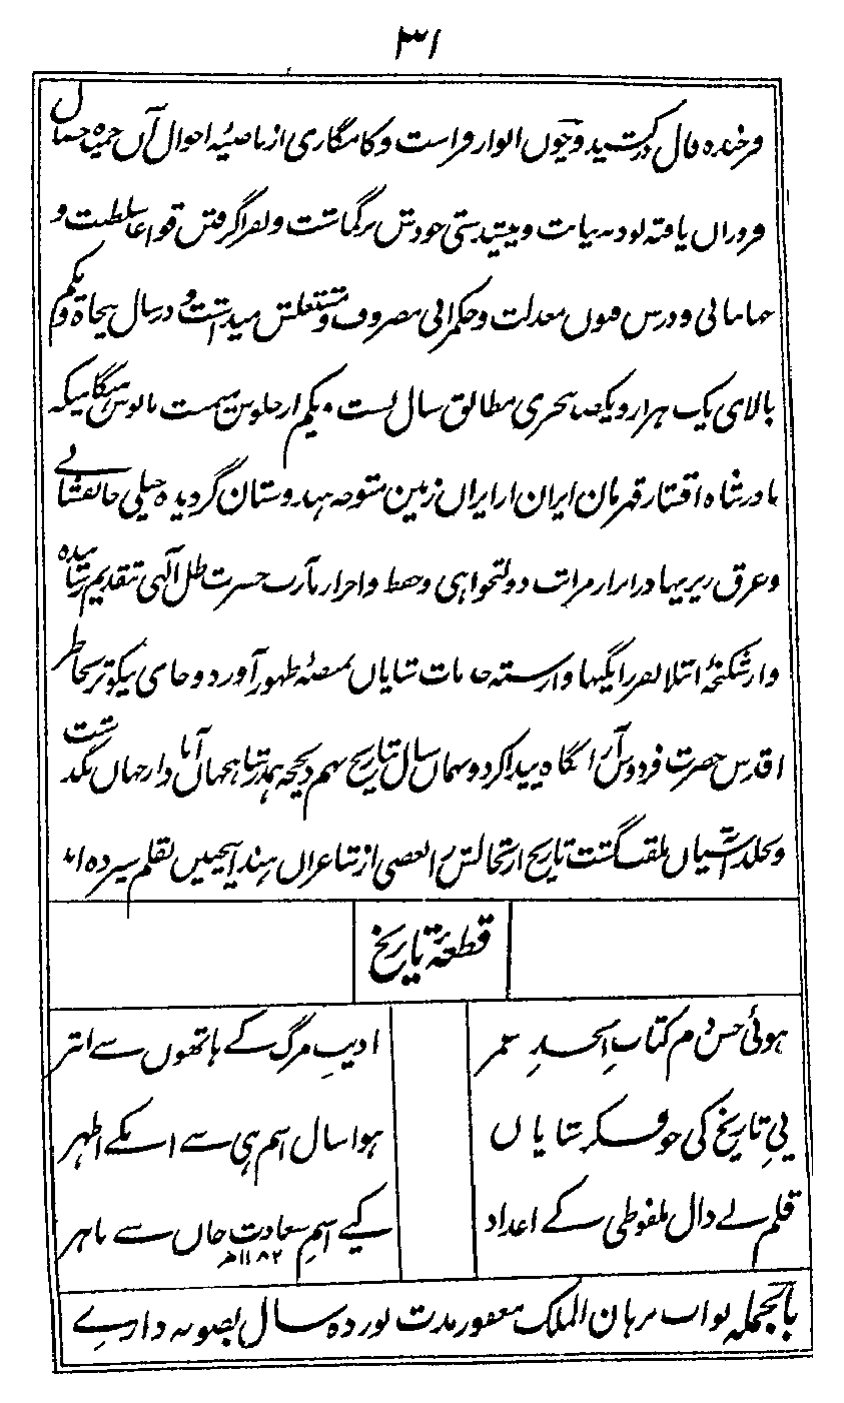 ۳۱
فرخنده فال درکشید و چوں انوار فراست و کامگاری از ناصیۂ احوال آں حمیده خصال
فروزاں یافته بود به نیابت و پیشدستی خودش برگماشت و بفراگرفتن قواعد سلطنت و
جهانبانی و درس فنون معدلت و حکمرانی مصروف و مشتغلش میداشت و در سال پنجاه و یکم
بالای یک هزار و یکصد هجری مطابق سال بست و یکم از جلوس میمنت مانوس هنگامیکه
نادر شاه افشار قهرمان ایران از ایران زمین متوجه هندوستان گردیده خیلی جانفشانے
و عرق ریزیها در ابراز مراتب دولتخواهی و حفظ و احراز مآرب حضرت ظل الٰهی بتقدیم رسانیده
و از شکنجۂ ابتلا بفرزانگیها وارسته خدمات شایاں بمنصۂ ظهور آورد و جای نیکو تر بخاطر
اقدس حضرت فردوس آرامگاه پیدا کرد و بهماں سال تاریخ نهم ذیحجه بمد شاهجهاں آباد از جهاں گذشت
و بخلد آشیاں ملقب گشت تاریخ ارتحالش را بعضی از شاعران هند اینچنین بقلم سپرده اند
قطعۂ تاریخ
هوئی جس دم کتابِ ابجدِ عمر
ادیبِ مرگ کے هاتھوں سے ابتر
پیِ تاریخ کی جو فکر شایاں
هوا سال اسم هی سے اسکے اظهر
قلم نے دال ملفوظی کے اعداد
کیے اسمِ سعادت خاں سے باهر
۱۱۸۲ھ
بالجمله نواب برهان الملک مغفور مدت نوزده سال بصوبه دارے